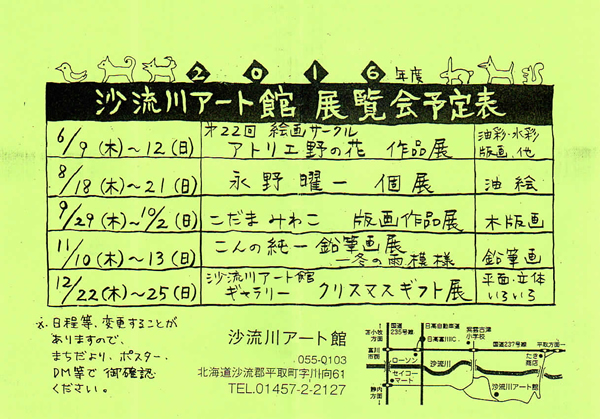 2016年度
沙流川アート館 展覧会予定表
6/9(木)~12(日) 第22回 絵画サークル アトリエ野の花 作品展 油彩・水彩 版画、他
8/18(木)~21(日) 永野曜一 個展 油絵
9/29(木)~10/2(日) こだまみわこ 版画作品展 木版画
11/10(木)~13(日) こんの純一 鉛筆画展 -冬の雨模様 鉛筆画
12/22(木)~25(日) 沙流川アート館 ギャラリー クリスマスギフト展 平面・立体 いろいろ
※日程等、変更することが
ありますので、
まちだより、ポスター、
DM等で御確認
ください。
沙流川アート館
055-0103
北海道沙流郡平取町字川向61
TEL.01457-2-2127
苫小牧方面
国道235号線
日高自動車道
日高富川IC.
紫雲古津小学校
国道237号線
平取方面
富川市街
ローソン
セイコーマート
沙流川
たき商店
沙流川アート館
静内方面